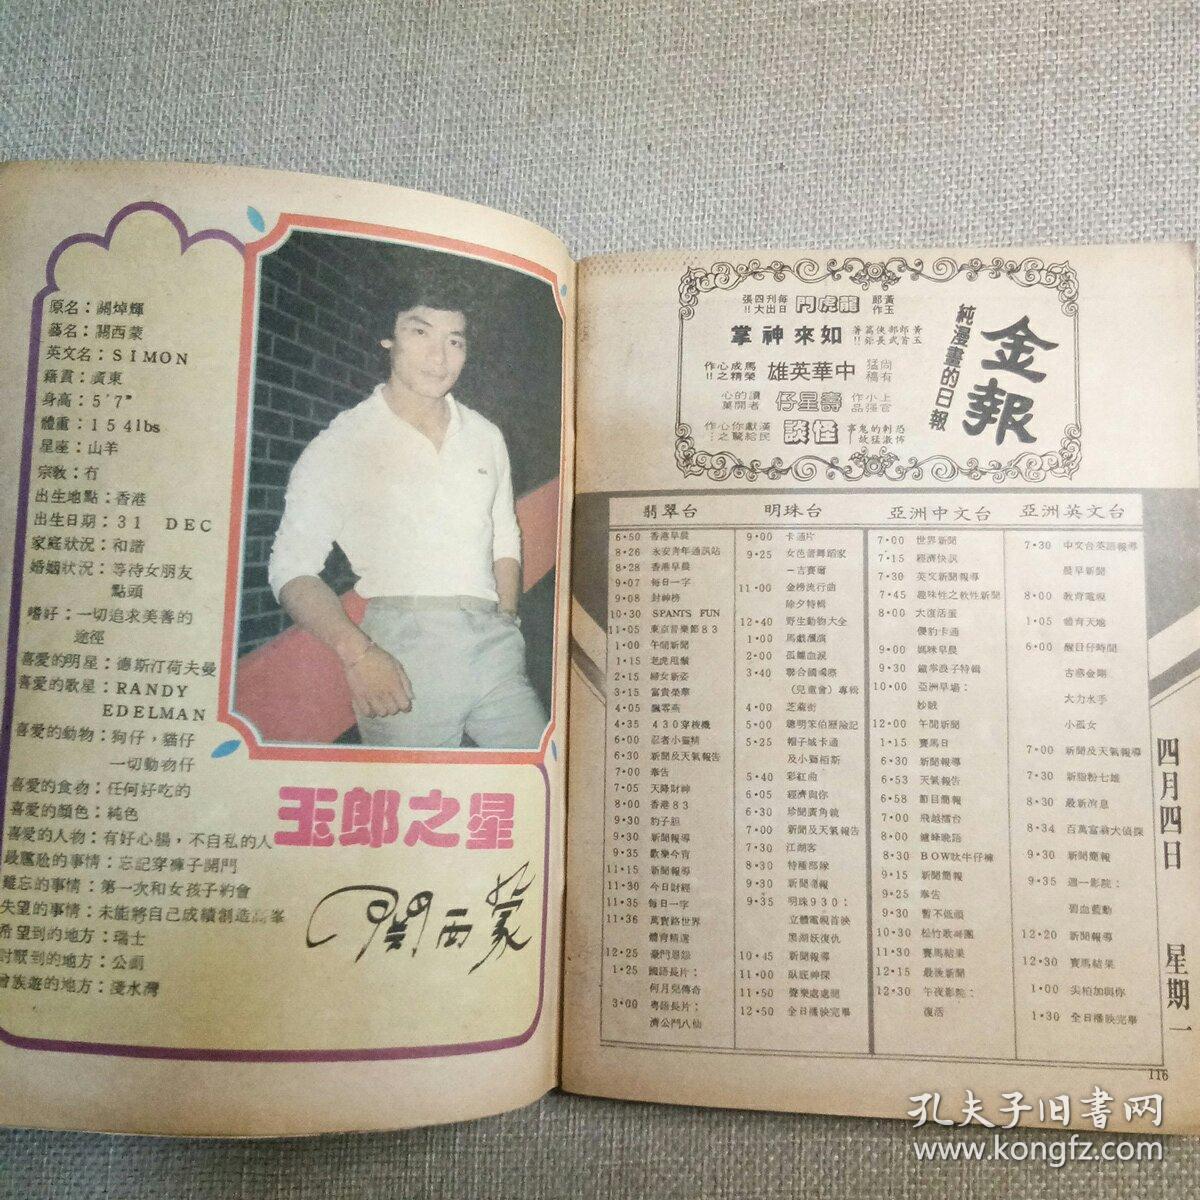 原名：關焯輝
藝名：關西蒙
英文名：SIMON
籍貫：廣東
身高：5'7"
體重：154lbs
星座：山羊
宗教：冇
出生地點：香港
出生日期：31 DEC
家庭狀況：和諧
婚姻狀況：等待女朋友
點頭
嗜好：一切追求美善的
途徑
喜愛的明星：德斯汀荷夫曼
喜愛的歌星：RANDY
EDELMAN
喜愛的動物：狗仔，貓仔
一切動物仔
喜愛的食物：任何好吃的
喜愛的顏色：純色
喜愛的人物：有好心腸，不自私的人
最尷尬的事情：忘記穿褲子開門
難忘的事情：第一次和女孩子約會
失望的事情：未能將自己成績創造高峯
希望到的地方：瑞士
討厭到的地方：公廁
曾族遊的地方：淺水灣
玉郎之星
關西蒙
金報
純漫畫的日報
黃玉郎作
龍虎門
每日刊出四大張!!
黃玉郎首部武俠長篇
如來神掌
尚有猛稿
中華英雄
馬榮成精心之作!!
上官小強作品
壽星仔
讀者的開心
恐怖刺激的猛鬼故事
怪談
翡翠台
6·50 香港早晨
8·26 永安青年通訊站
8·28 香港早晨
9·07 每日一字
9·08 封神榜
10·30 SPANTS FUN
11·05 東京音樂節83
1·00 午間新聞
1·15 老虎甩鬚
2·15 婦女新姿
3·15 富貴榮華
4·05 飄零燕
4·35 430穿梭機
6·00 忍者小靈精
6·30 新聞及天氣報告
7·00 奉告
7·05 天降財神
8·00 香港83
9·30 豹子胆
9·30 新聞報導
9·35 歡樂今宵
11·15 新聞報導
11·30 今日財經
11·35 每日一字
11·36 萬寶路世界
體育精選
12·25 豪門恩怨
1·25 國語長片：
何月兒傳奇
3·00 粵語長片：
濟公鬥八仙
明珠台
9·00 卡通片
9·25 女芭蕾舞蹈家
－吉賽爾
11·00 金榜流行曲
除夕特輯
12·40 野生動物大全
1·00 馬戲滙演
2·00 孤雛血淚
3·40 聯合國國際
（兒童會）專輯
4·00 芝蔴街
5·00 聰明笨伯歷險記
5·25 帽子城卡通
及小獅栢斯
5·40 彩虹曲
6·05 經濟與你
6·30 珍聞廣角鏡
7·00 新聞及天氣報告
7·30 江湖客
8·30 特種部隊
9·30 新聞簡報
9·35 明珠930：
立體電視首映
黑湖妖復仇
10·45 新聞報導
11·00 臥底神探
11·50 聲樂處處聞
12·50 全日播映完畢
亞洲中文台
7·00 世界新聞
7·15 經濟快訊
7·30 英文新聞報導
7·45 趣味性之軟性新聞
8·00 大復活蛋
傻豹卡通
9·00 媽咪早晨
9·30 鐵拳浪子特輯
10·00 亞洲早場：
妙賊
12·00 午間新聞
1·15 賽馬日
6·30 新聞報導
6·53 天氣報告
6·58 節目簡報
7·00 飛越擂台
8·00 爐峰晚路
8·30 BOW呔牛仔褲
9·15 新聞簡報
9·25 奉告
9·30 暫不低頭
10·30 松竹歌舞團
11·30 賽馬結果
12·15 最後新聞
12·30 午夜影院：
復活
亞洲英文台
7·30 中文台英語報導
晨早新聞
8·00 教育電視
1·05 體育天地
6·00 醒目仔時間
古惑金剛
大力水手
小孤女
7·00 新聞及天氣報導
7·30 新脂粉七雄
8·30 最新消息
8·34 百萬富翁大偵探
9·30 新聞簡報
9·35 週一影院：
碧血藍動
12·20 新聞報導
12·30 賽馬結果
1·00 尖柏加與你
1·30 全日播映完畢
四月四日 星期一
116
孔夫子旧書网
www.kongfz.com